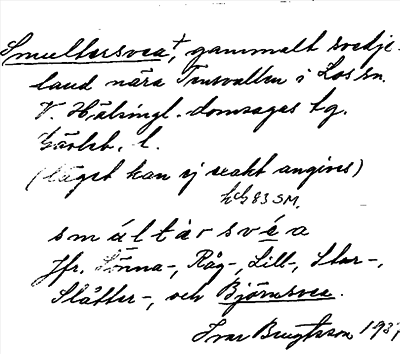 Smultersvea†, gammalt svedje-
land nära Tensvallen i Los sn.
V. Hälsingl. domsagas tg.
Gävleb. l.
(läget kan ej exakt angives)
83 SM.
smúltàrsvéa
Jfr. Tönna-, Råg-, Lill-, Stor-,
Slåtter-, och Björnsvea.
Ivar Bengtsson 1937